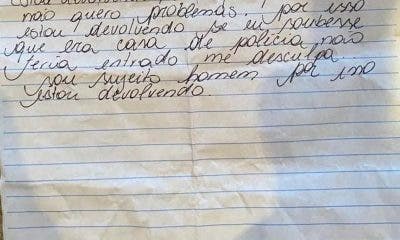 não quero problemas, por isso
estou devolvendo se eu soubesse
que era casa de policia não
teria entrado me desculpa
sou sujeito homem por isso
estou devolvendo.